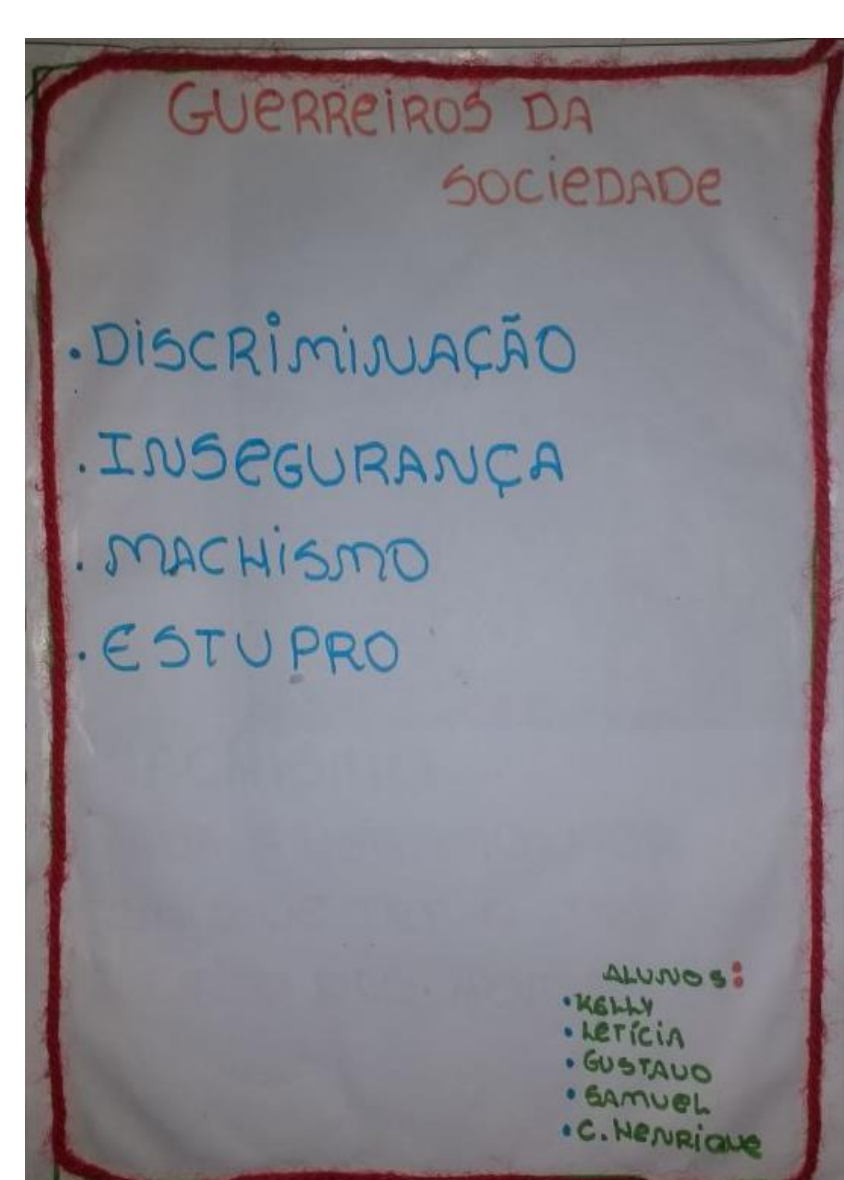 GUERREIROS DA
SOCIEDADE
. DISCRIMINAÇÃO
. INSEGURANÇA
. MACHISMO
. ESTUPRO
ALUNOS:
• KELLY
• LETÍCIA
• GUSTAVO
• SAMUEL
• C. HENRIQUE